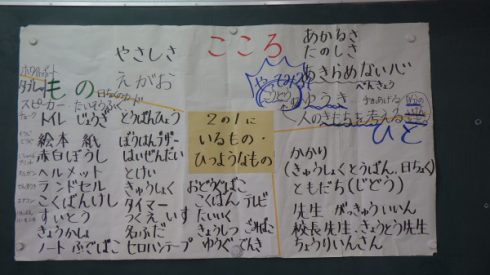 こころ
やさしさ
えがお
あかるさ
たのしさ
あきらめない心
べんきょう
やってみよう
こうどう
ゆうき
人のきもちを考える
ひと
もの
ホワイトボード
タブレット
スピーカー たいそうふく
日ちょくカード
トイレ じょうぎ とうばんひょう
絵本 紙 ぼうはんブザー
赤白ぼうし はいぜんだい
ヘルメット とけい
ランドセル きゅうしょく おどうぐばこ
こくばんけし タイマー こくばん テレビ
すいとう つくえ いす たいいく
きょうかしょ 名ふだ きょうしつ ごみばこ
ノート ふでばこ セロハンテープ ゆうぐ でんき
2の1に
いるもの・
ひつようなもの
かかり
(きゅうしょくとうばん、日ちょく)
ともだち(じどう)
先生 がっきゅういいん
校長先生・きょうとう先生
ちょうりいんさん